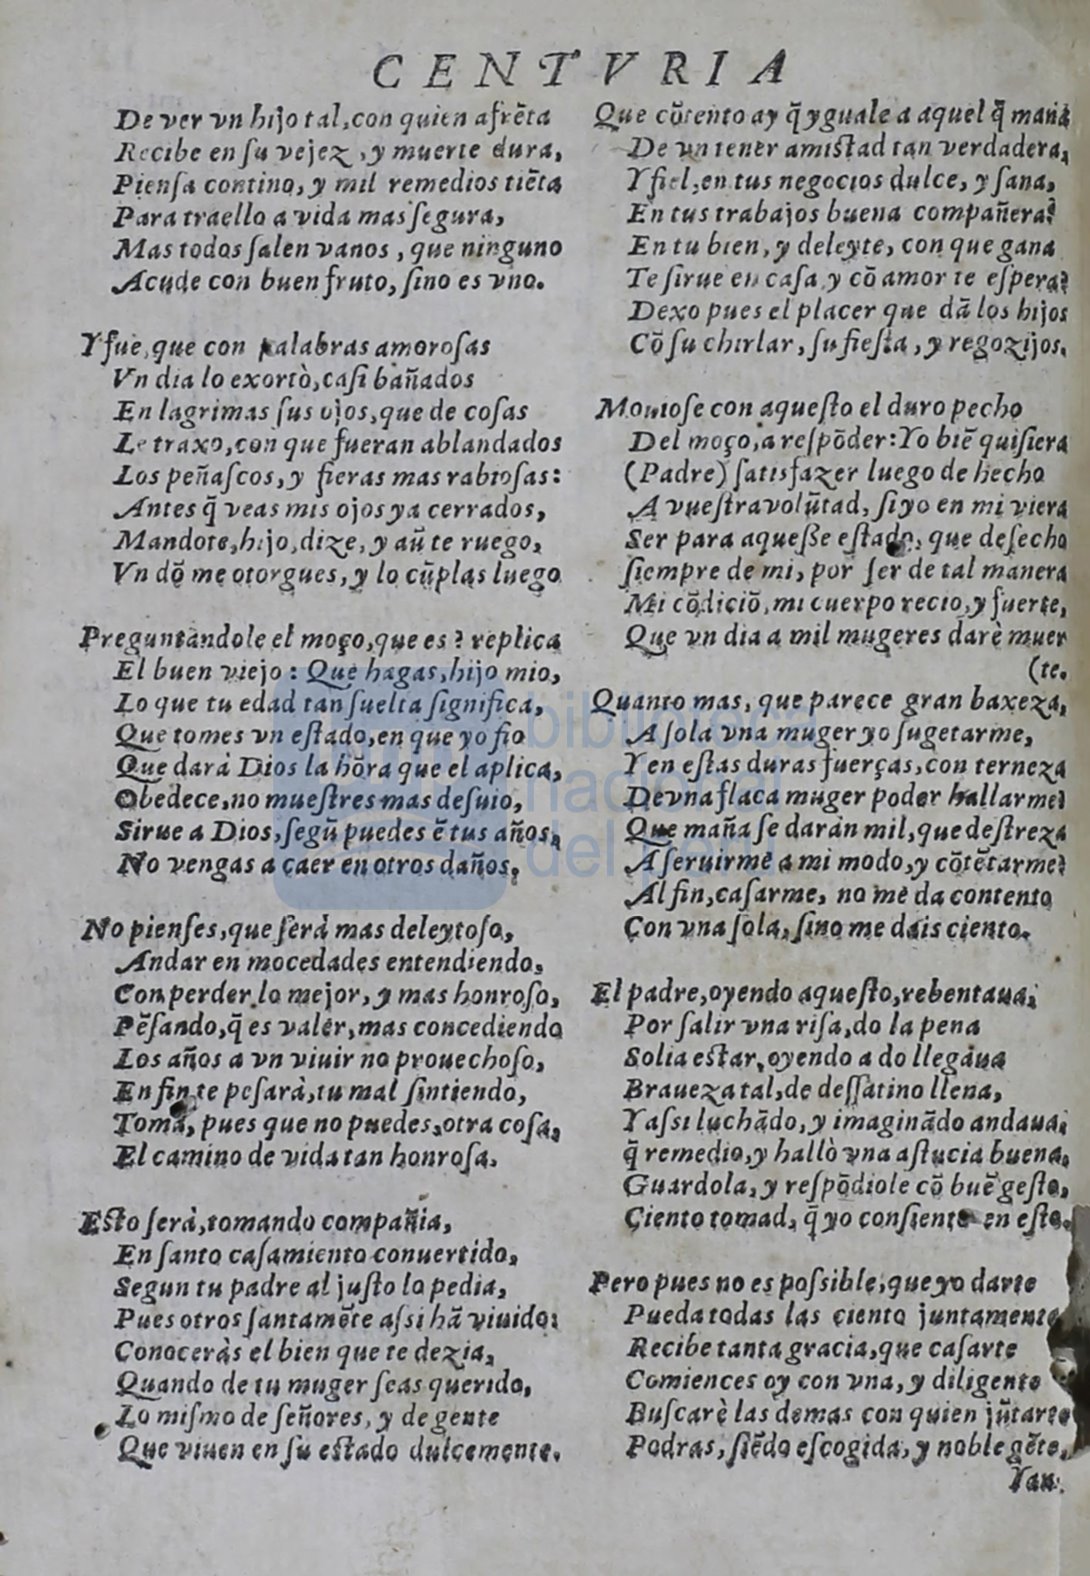 CENTVRIA
De ver vn hijo tal, con quien afrẽta
Recibe en ſu vejez, y muerte dura,
Pienſa contino, y mil remedios tiẽta
Para traello a vida mas ſegura,
Mas todos ſalen vanos, que ninguno
Acude con buen fruto, ſino es vno.
Y fue, que con palabras amoroſas
Vn dia lo exortò, caſi bañados
En lagrimas ſus ojos, que de coſas
Le traxo, con que fueran ablandados
Los peñaſcos, y fieras mas rabioſas:
Antes q̃ veas mis ojos ya cerrados,
Mandote, hijo, dize, y aũ te ruego,
Vn dõ me otorgues, y lo cũplas luego
Preguntandole el moço, que es? replica
El buen viejo: Que hagas, hijo mio,
Lo que tu edad tan ſuelta ſignifica,
Que tomes vn eſtado, en que yo fio
Que darà Dios la hõra que el aplica,
Obedece, no mueſtres mas deſuio,
Sirue a Dios, ſegũ puedes ẽ tus años,
No vengas a caer en otros daños,
No pienſes, que ſerà mas deleytoſo,
Andar en mocedades entendiendo,
Con perder lo mejor, y mas honroſo,
Pẽſando, q̃ es valer, mas concediendo
Los años a vn viuir no prouechoſo,
En fin te peſarà, tu mal ſintiendo,
Toma, pues que no puedes, otra coſa,
El camino de vida tan honroſa.
Eſto ſerà, tomando compañia,
En ſanto caſamiento conuertido,
Segun tu padre al juſto lo pedia,
Pues otros ſantamẽte aſsi hã viuido:
Conoceràs el bien que te dezia,
Quando de tu muger ſeas querido,
Lo miſmo de ſeñores, y de gente
Que viuen en ſu eſtado dulcemente.
Que cõtento ay q̃ yguale a aquel q̃ manà
De vn tener amiſtad tan verdadera,
Y fiel, en tus negocios dulce, y ſana,
En tus trabajos buena compañera?
En tu bien, y deleyte, con que gana
Te ſirue en caſa, y cõ amor te eſpera?
Dexo pues el placer que dã los hijos
Cõ ſu chirlar, ſu fieſta, y regozijos.
Mouioſe con aqueſto el duro pecho
Del moço, a reſpõder: Yo biẽ quiſiera
(Padre) ſatisfazer luego de hecho
A vueſtra volũtad, ſi yo en mi viera
Ser para aqueſſe eſtado, que deſecho
ſiempre de mi, por ſer de tal manera
Mi cõdiciõ, mi cuerpo recio, y fuerte,
Que vn dia a mil mugeres darè muer
(te.
Quanto mas, que parece gran baxeza,
A ſola vna muger yo ſugetarme,
Y en eſtas duras fuerças, con terneza
De vna flaca muger poder hallarme?
Que maña ſe daràn mil, que deſtreza
A ſeruirme a mi modo, y cõtẽtarme?
Al fin, caſarme, no me da contento
Con vna ſola, ſino me dais ciento.
El padre, oyendo aqueſto, rebentaua;
Por ſalir vna riſa, do la pena
Solia eſtar, oyendo a do llegaua
Braueza tal, de deſſatino llena,
Y aſsi luchãdo, y imaginãdo andaua;
q̃ remedio, y hallò vna aſtucia buena,
Guardola, y reſpõdiole cõ buẽ geſto,
Ciento tomad, q̃ yo conſiento en eſto.
Pero pues no es poſsible, que yo darte
Pueda todas las ciento juntamente
Recibe tanta gracia, que caſarte
Comiences oy con vna, y diligente
Buſcarè las demas con quien jũtarte
Podras, ſiẽdo eſcogida, y noble gẽte,
Tan
biblioteca
nacional
del perú